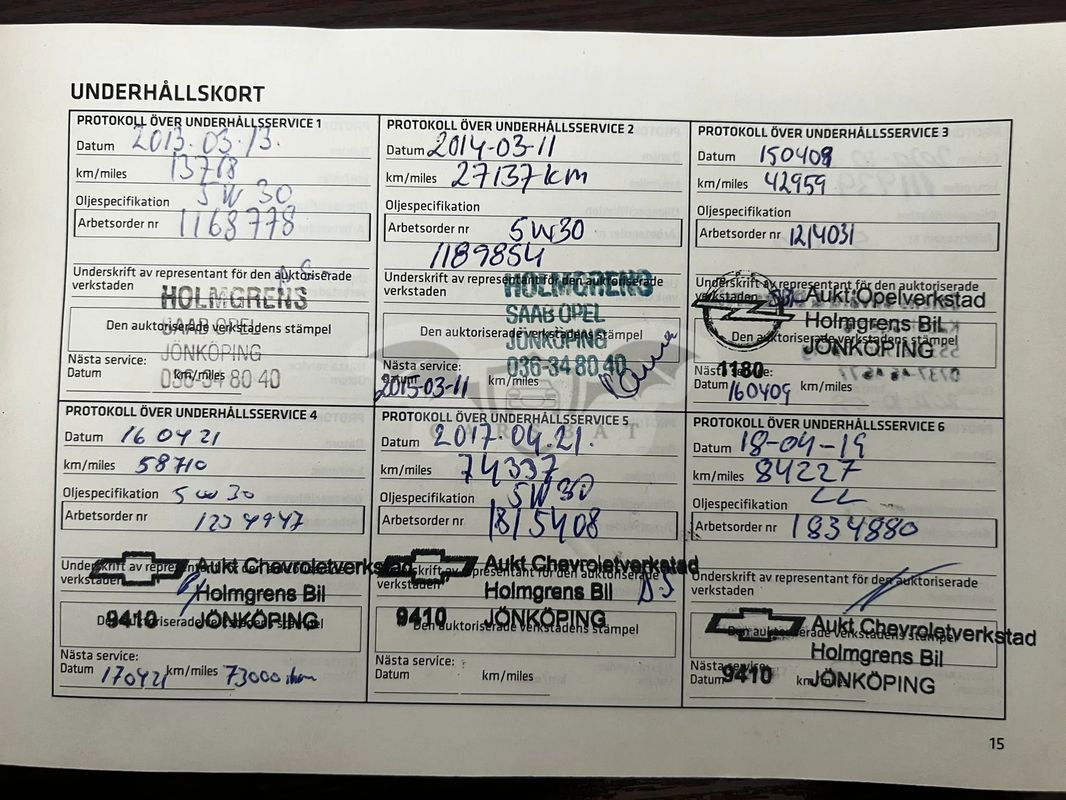 UNDERHÅLLSKORT
PROTOKOLL ÖVER UNDERHÅLLSSERVICE 1
Datum 2013.03.13.
km/miles 13718
Oljespecifikation 5W 30
Arbetsorder nr 1168778
Underskrift av representant för den auktoriserade
verkstaden
HOLMGRENS
SAAB OPEL
Den auktoriserade verkstadens stämpel
JÖNKÖPING
036-34 80 40
Nästa service:
Datum km/miles
PROTOKOLL ÖVER UNDERHÅLLSSERVICE 2
Datum 2014-03-11
km/miles 27137 km
Oljespecifikation
Arbetsorder nr 5W30
1189854
Underskrift av representant för den auktoriserade
verkstaden
HOLMGRENS
SAAB OPEL
Den auktoriserade verkstadens stämpel
JÖNKÖPING
036-34 80 40
Nästa service:
Datum km/miles
2015-03-11
PROTOKOLL ÖVER UNDERHÅLLSSERVICE 3
Datum 150409
km/miles 42959
Oljespecifikation
Arbetsorder nr 1214031
Underskrift av representant för den auktoriserade
verkstaden
Aukt Opelverkstad
Holmgrens Bil
Den auktoriserade verkstadens stämpel
JÖNKÖPING
1180
Nästa service:
Datum 160409 km/miles
PROTOKOLL ÖVER UNDERHÅLLSSERVICE 4
Datum 16 04 21
km/miles 58710
Oljespecifikation 5W30
Arbetsorder nr 1234947
Underskrift av representant för den auktoriserade
verkstaden
Aukt Chevroletverkstad
Holmgrens Bil
9410 JÖNKÖPING
Den auktoriserade verkstadens stämpel
Nästa service:
Datum 170421 km/miles 73000
PROTOKOLL ÖVER UNDERHÅLLSSERVICE 5
Datum 2017.04.21.
km/miles 74337
Oljespecifikation 5W30
Arbetsorder nr 1815408
Underskrift av representant för den auktoriserade
verkstaden
Aukt Chevroletverkstad
Holmgrens Bil
9410 JÖNKÖPING
Den auktoriserade verkstadens stämpel
Nästa service:
Datum km/miles
PROTOKOLL ÖVER UNDERHÅLLSSERVICE 6
Datum 18-04-19
km/miles 84227
Oljespecifikation
Arbetsorder nr 1834880
Underskrift av representant för den auktoriserade
verkstaden
Aukt Chevroletverkstad
Den auktoriserade verkstadens stämpel
Holmgrens Bil
9410 JÖNKÖPING
Nästa service:
Datum km/miles
CARSBAT
15